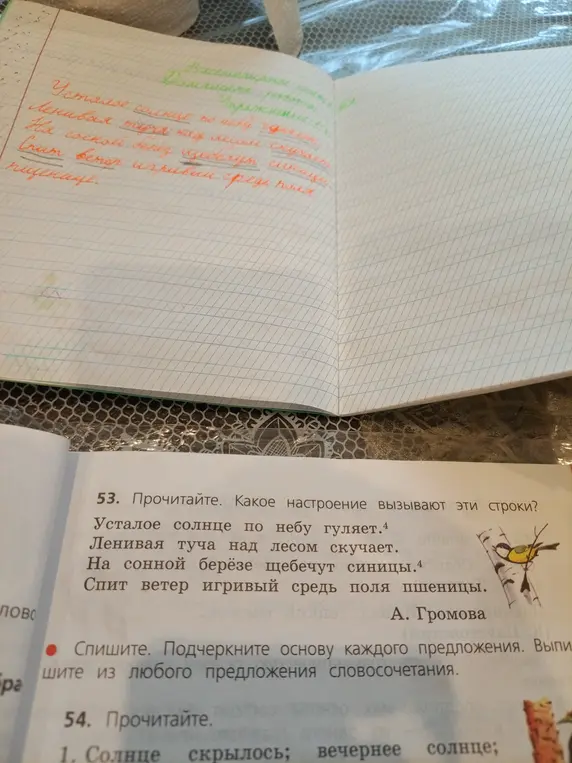 Домашняя работа
Упражнение 53
Усталое солнце по небу гуляет.
Ленивая туча над лесом скучает.
На сонной берёзе щебечут синицы.
Спит ветер игривый средь поля
пшеницы.
53. Прочитайте. Какое настроение вызывают эти строки?
Усталое солнце по небу гуляет.⁴
Ленивая туча над лесом скучает.
На сонной берёзе щебечут синицы.⁴
Спит ветер игривый средь поля пшеницы.
А. Громова
• Спишите. Подчеркните основу каждого предложения. Выпи
шите из любого предложения словосочетания.
54. Прочитайте.
1. Солнце скрылось; вечернее солнце;